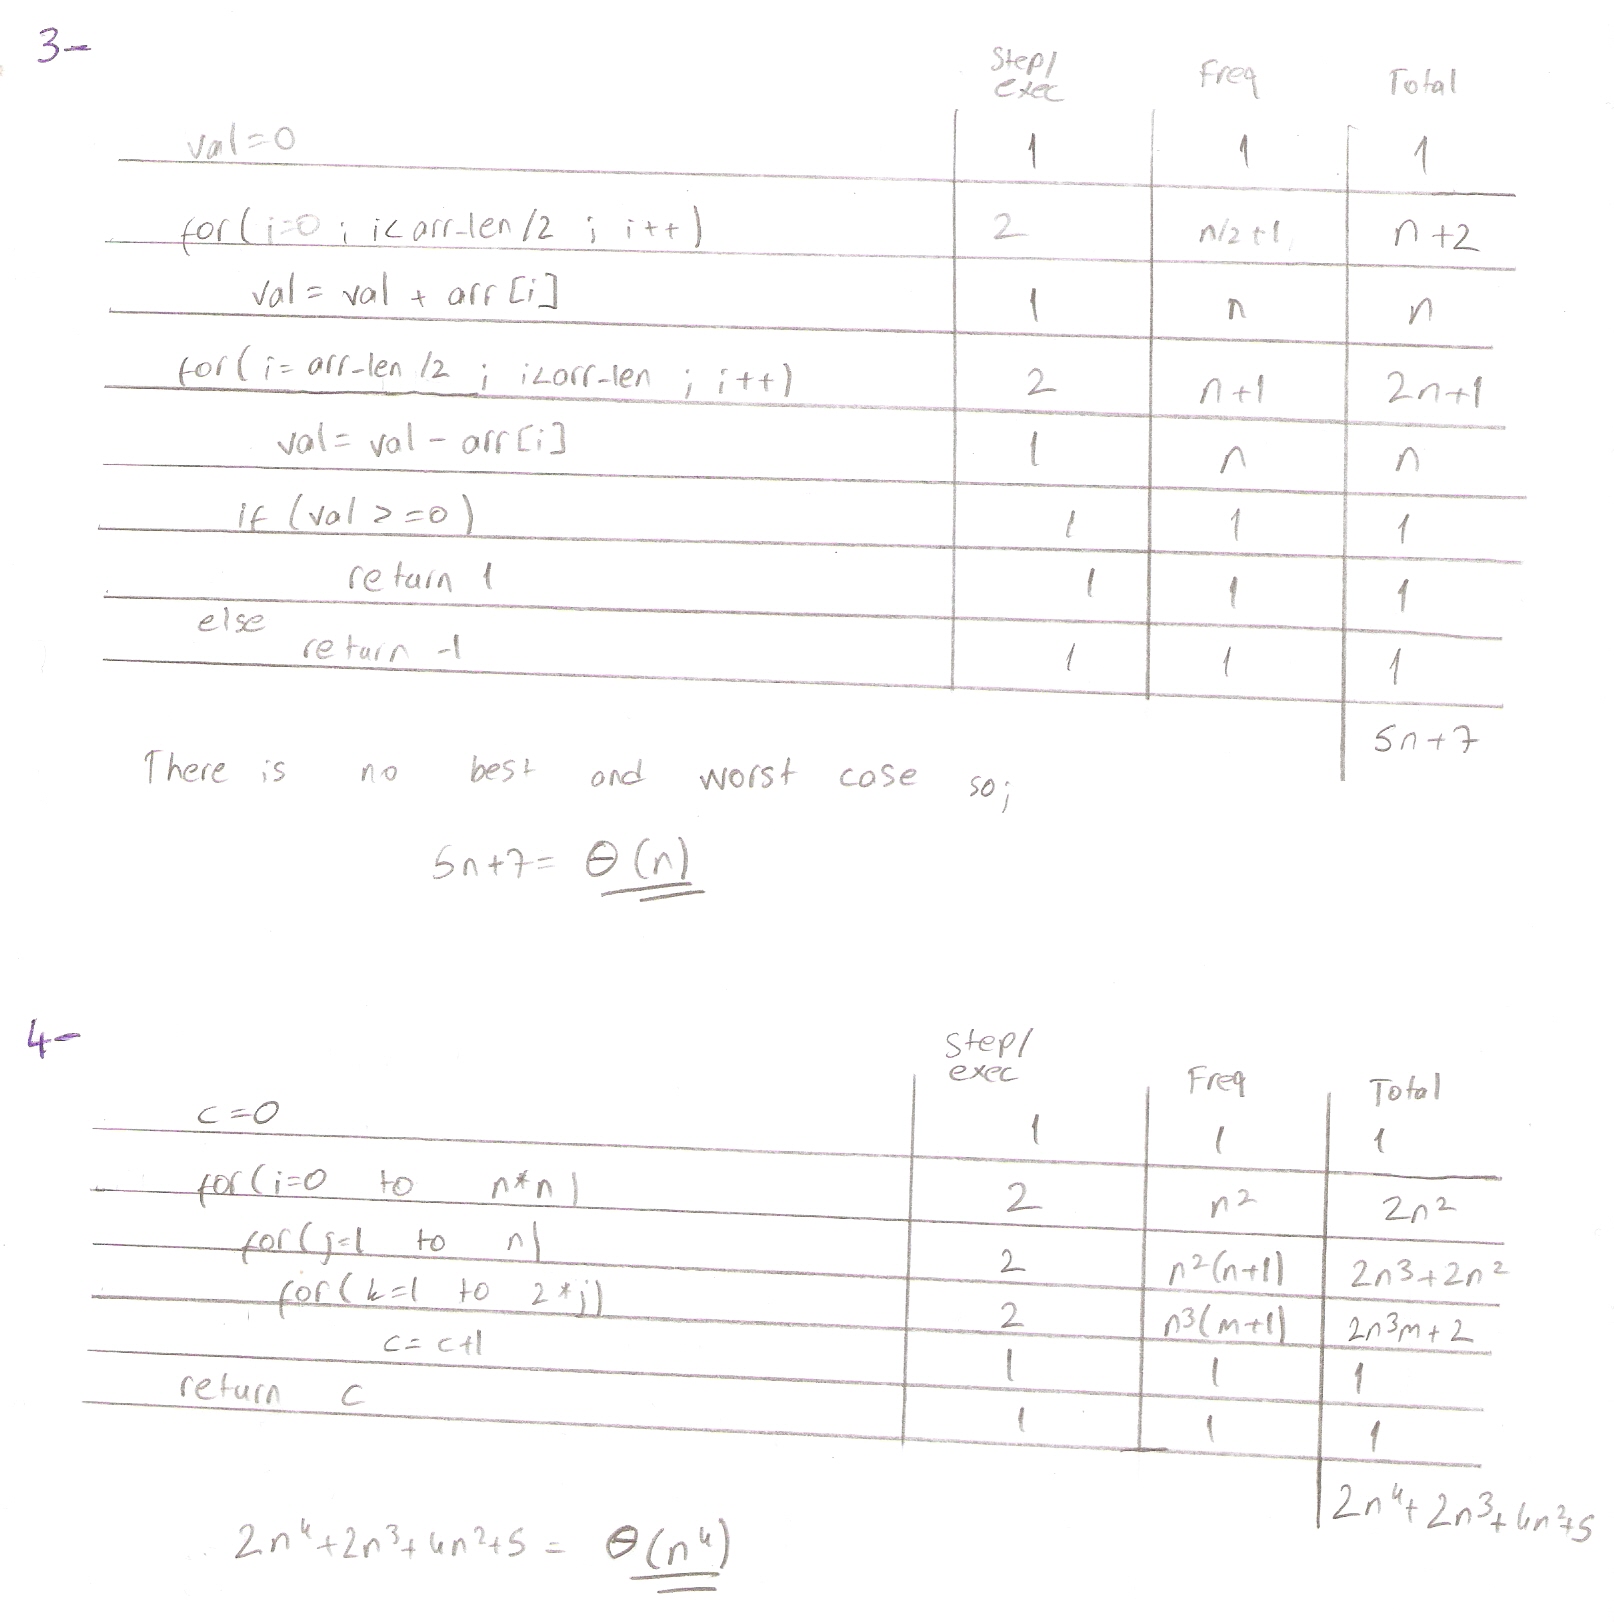 3-
Step/ exec Freq Total
val=0 1 1 1
for(i=0 ; i<arr-len/2 ; i++) 2 n/2+1 n+2
val = val + arr[i] 1 n n
for(i= arr-len/2 ; i<arr-len ; i++) 2 n+1 2n+1
val = val - arr[i] 1 n n
if (val >=0) 1 1 1
return 1 1 1 1
else
return -1 1 1 1
5n+7
There is no best and worst case so;
5n+7= Θ(n)
4-
Step/ exec Freq Total
c=0 1 1 1
for(i=0 to n*n) 2 n² 2n²
for(j=1 to n) 2 n²(n+1) 2n³+2n²
for(k=1 to 2*j) 2 n³(m+1) 2n³m+2
c=c+1 1 1 1
return c 1 1 1
2n⁴+2n³+4n²+5
2n⁴+2n³+4n²+5 = Θ(n⁴)